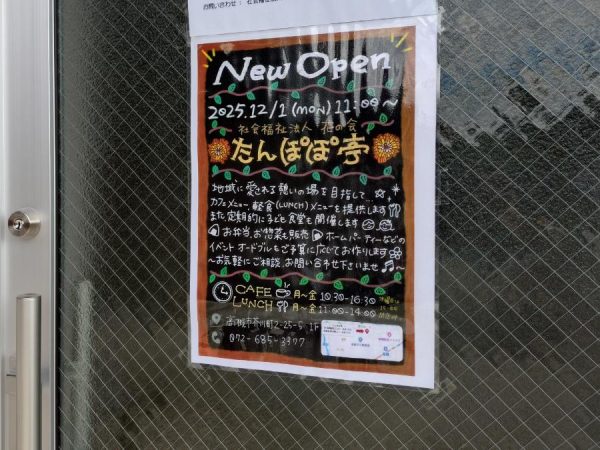 お問い合わせ：社会福祉
New Open
2025.12/1 (MON) 11:00～
社会福祉法人 花の会
たんぽぽ亭
地域に愛される憩いの場を目指して…
カフェメニュー、軽食(LUNCH)メニューを提供します
また定期的に子ども食堂も開催します
お弁当、お惣菜も販売 ホームパーティーなどの
イベントオードブルもご予算に応じてお作りします
～お気軽にご相談、お問い合わせ下さいませ♫～
CAFE 月～金 10:30-16:30
LUNCH 月～金 11:00-14:00
高槻市芥川町2-25-5 1F
072-685-3977